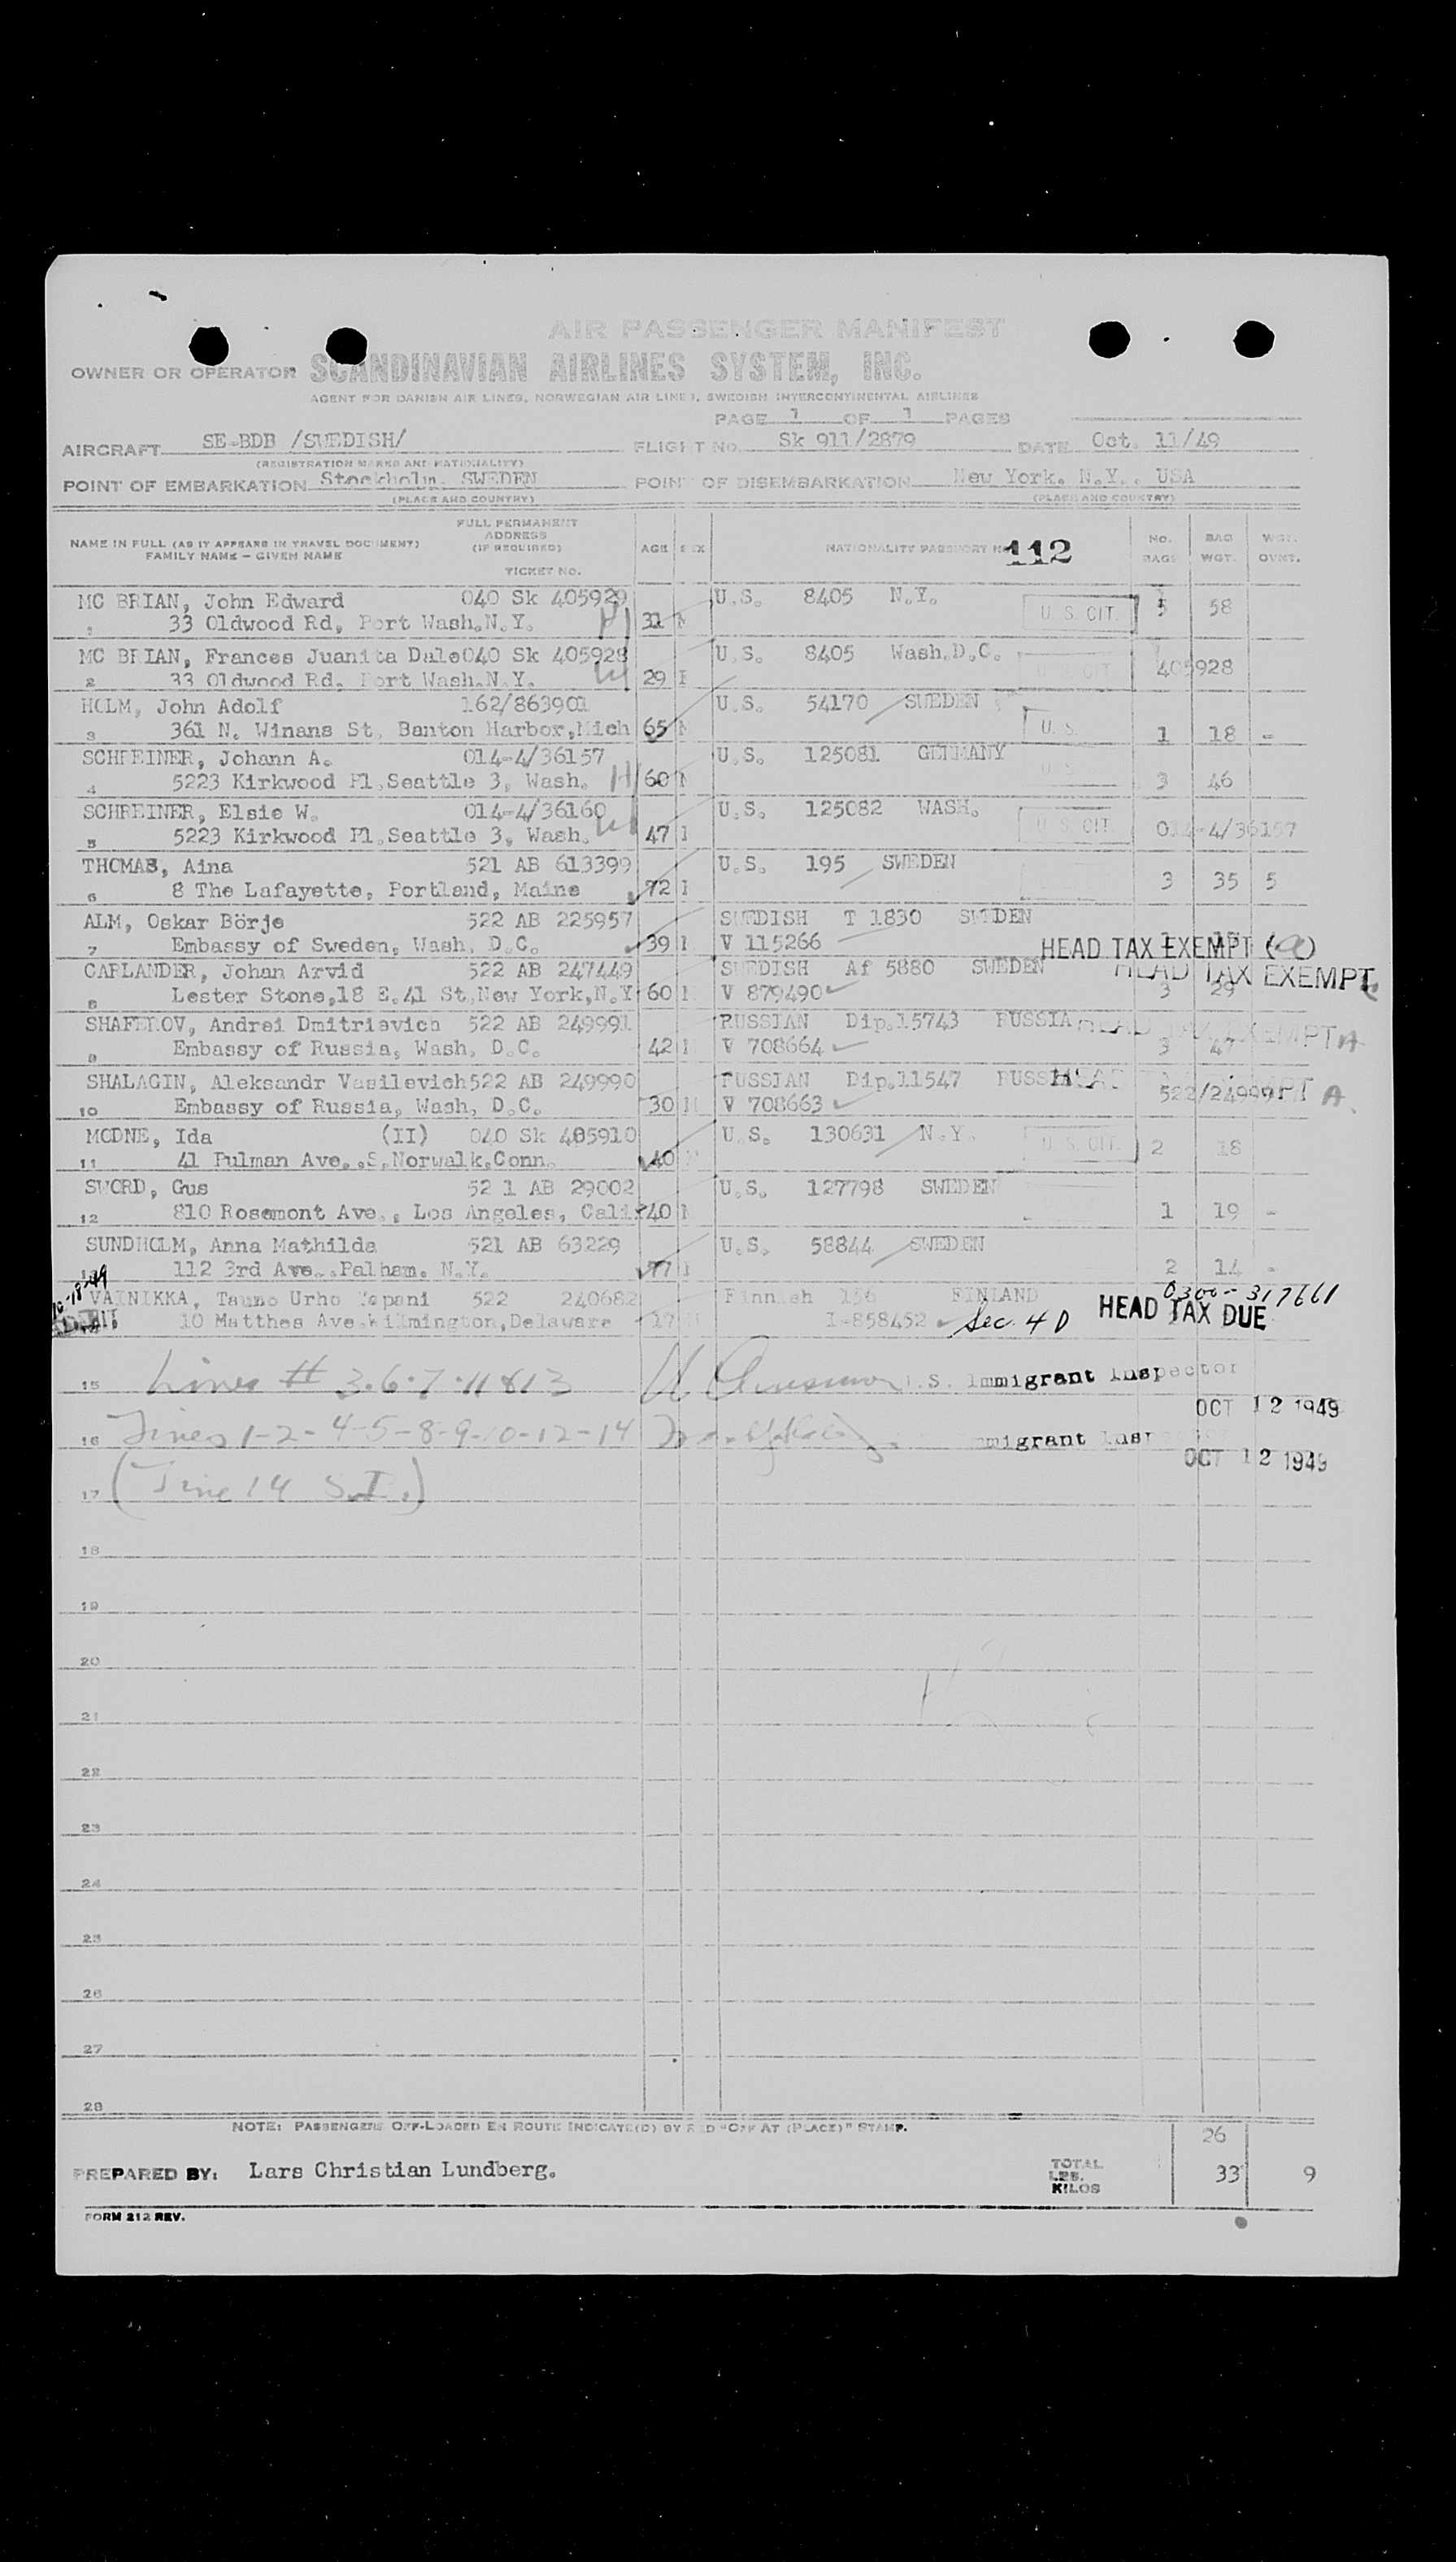 AIR PASSENGER MANIFEST
OWNER OR OPERATOR SCANDINAVIAN AIRLINES SYSTEM, INC.
AGENT FOR DANISH AIR LINES, NORWEGIAN AIR LINES, SWEDISH INTERCONTINENTAL AIRLINES
PAGE 1 OF 1 PAGES
AIRCRAFT SE-BDB /SWEDISH/ FLIGHT NO. Sk 911/2879 DATE Oct. 11/49
(REGISTRATION MARKS AND NATIONALITY)
POINT OF EMBARKATION Stockholm, SWEDEN POINT OF DISEMBARKATION New York, N.Y., USA
(PLACE AND COUNTRY) (PLACE AND COUNTRY)
NAME IN FULL (AS IT APPEARS IN TRAVEL DOCUMENT) FAMILY NAME - GIVEN NAME FULL PERMANENT ADDRESS (IF REQUIRED) TICKET NO. AGE SEX NATIONALITY PASSPORT NO. 112 NO. BAGS BAG WGT. WGT. OVWT.
MC BRIAN, John Edward 040 Sk 405929 U.S. 8405 N.Y. U.S. CIT. 5 58
1 33 Oldwood Rd, Port Wash.N.Y. H 31 M
MC BRIAN, Frances Juanita Dale 040 Sk 405928 U.S. 8405 Wash.D.C. U.S. CIT. 405928
2 33 Oldwood Rd. Port Wash.N.Y. W 29 F
HOLM, John Adolf 162/863901 U.S. 54170 SWEDEN U.S.
3 361 N. Winans St, Banton Harbor,Mich 65 M 1 18 -
SCHREINER, Johann A. 014-4/36157 U.S. 125081 GERMANY U.S.
4 5223 Kirkwood Pl,Seattle 3, Wash. H 60 M 3 46
SCHREINER, Elsie W. 014-4/36160 U.S. 125082 WASH. U.S. CIT. 014-4/36157
5 5223 Kirkwood Pl,Seattle 3, Wash. W 47 F
THOMAS, Aina 521 AB 613399 U.S. 195 SWEDEN
6 8 The Lafayette, Portland, Maine 72 F 3 35 5
ALM, Oskar Börje 522 AB 225957 SWEDISH T 1830 SWEDEN
7 Embassy of Sweden, Wash, D.C. 39 M V 115266 HEAD TAX EXEMPT
CARLANDER, Johan Arvid 522 AB 247449 SWEDISH Af 5880 SWEDEN HEAD TAX EXEMPT
8 Lester Stone,18 E.41 St,New York,N.Y 60 M V 879490 3 29
SHAFETOV, Andrei Dmitrievich 522 AB 249991 RUSSIAN Dip.15743 RUSSIA HEAD TAX EXEMPT A
9 Embassy of Russia, Wash, D.C. 42 M V 708664 3 47
SHALAGIN, Aleksandr Vasilevich 522 AB 249990 RUSSIAN Dip.11547 RUSSIA HEAD TAX EXEMPT A
10 Embassy of Russia, Wash, D.C. 30 M V 708663 522/249991
MODNE, Ida (II) 040 Sk 485910 U.S. 130631 N.Y. U.S. CIT. 2 18
11 41 Pulman Ave.,S.Norwalk.Conn. 40
SWORD, Gus 52 1 AB 29002 U.S. 127798 SWEDEN
12 810 Rosemont Ave., Los Angeles, Calif 40 M 1 19 -
SUNDHOLM, Anna Mathilda 521 AB 63229 U.S. 58844 SWEDEN
13 112 3rd Ave..Palham. N.Y. 77 F 2 14 -
VAINIKKA, Tauno Urho Tapani 522 240682 Finnish 156 FINLAND 0300-317661
ADMIT 10 Matthes Ave.Wilmington,Delaware 17 M I-858452 Sec. 4 D HEAD TAX DUE
15 Lines # 3.6.7.11 & 13 U.S. Immigrant Inspector
OCT 12 1949
16 Lines 1-2-4-5-8-9-10-12-14 Immigrant Inspector
OCT 12 1949
17 (Line 14 S.I.)
18
19
20
21
22
23
24
25
26
27
28
NOTE: PASSENGERS OFF-LOADED EN ROUTE INDICATE(D) BY RED "OFF AT (PLACE)" STAMP.
26
PREPARED BY: Lars Christian Lundberg. TOTAL LBS. KILOS 33 9
FORM 212 REV.